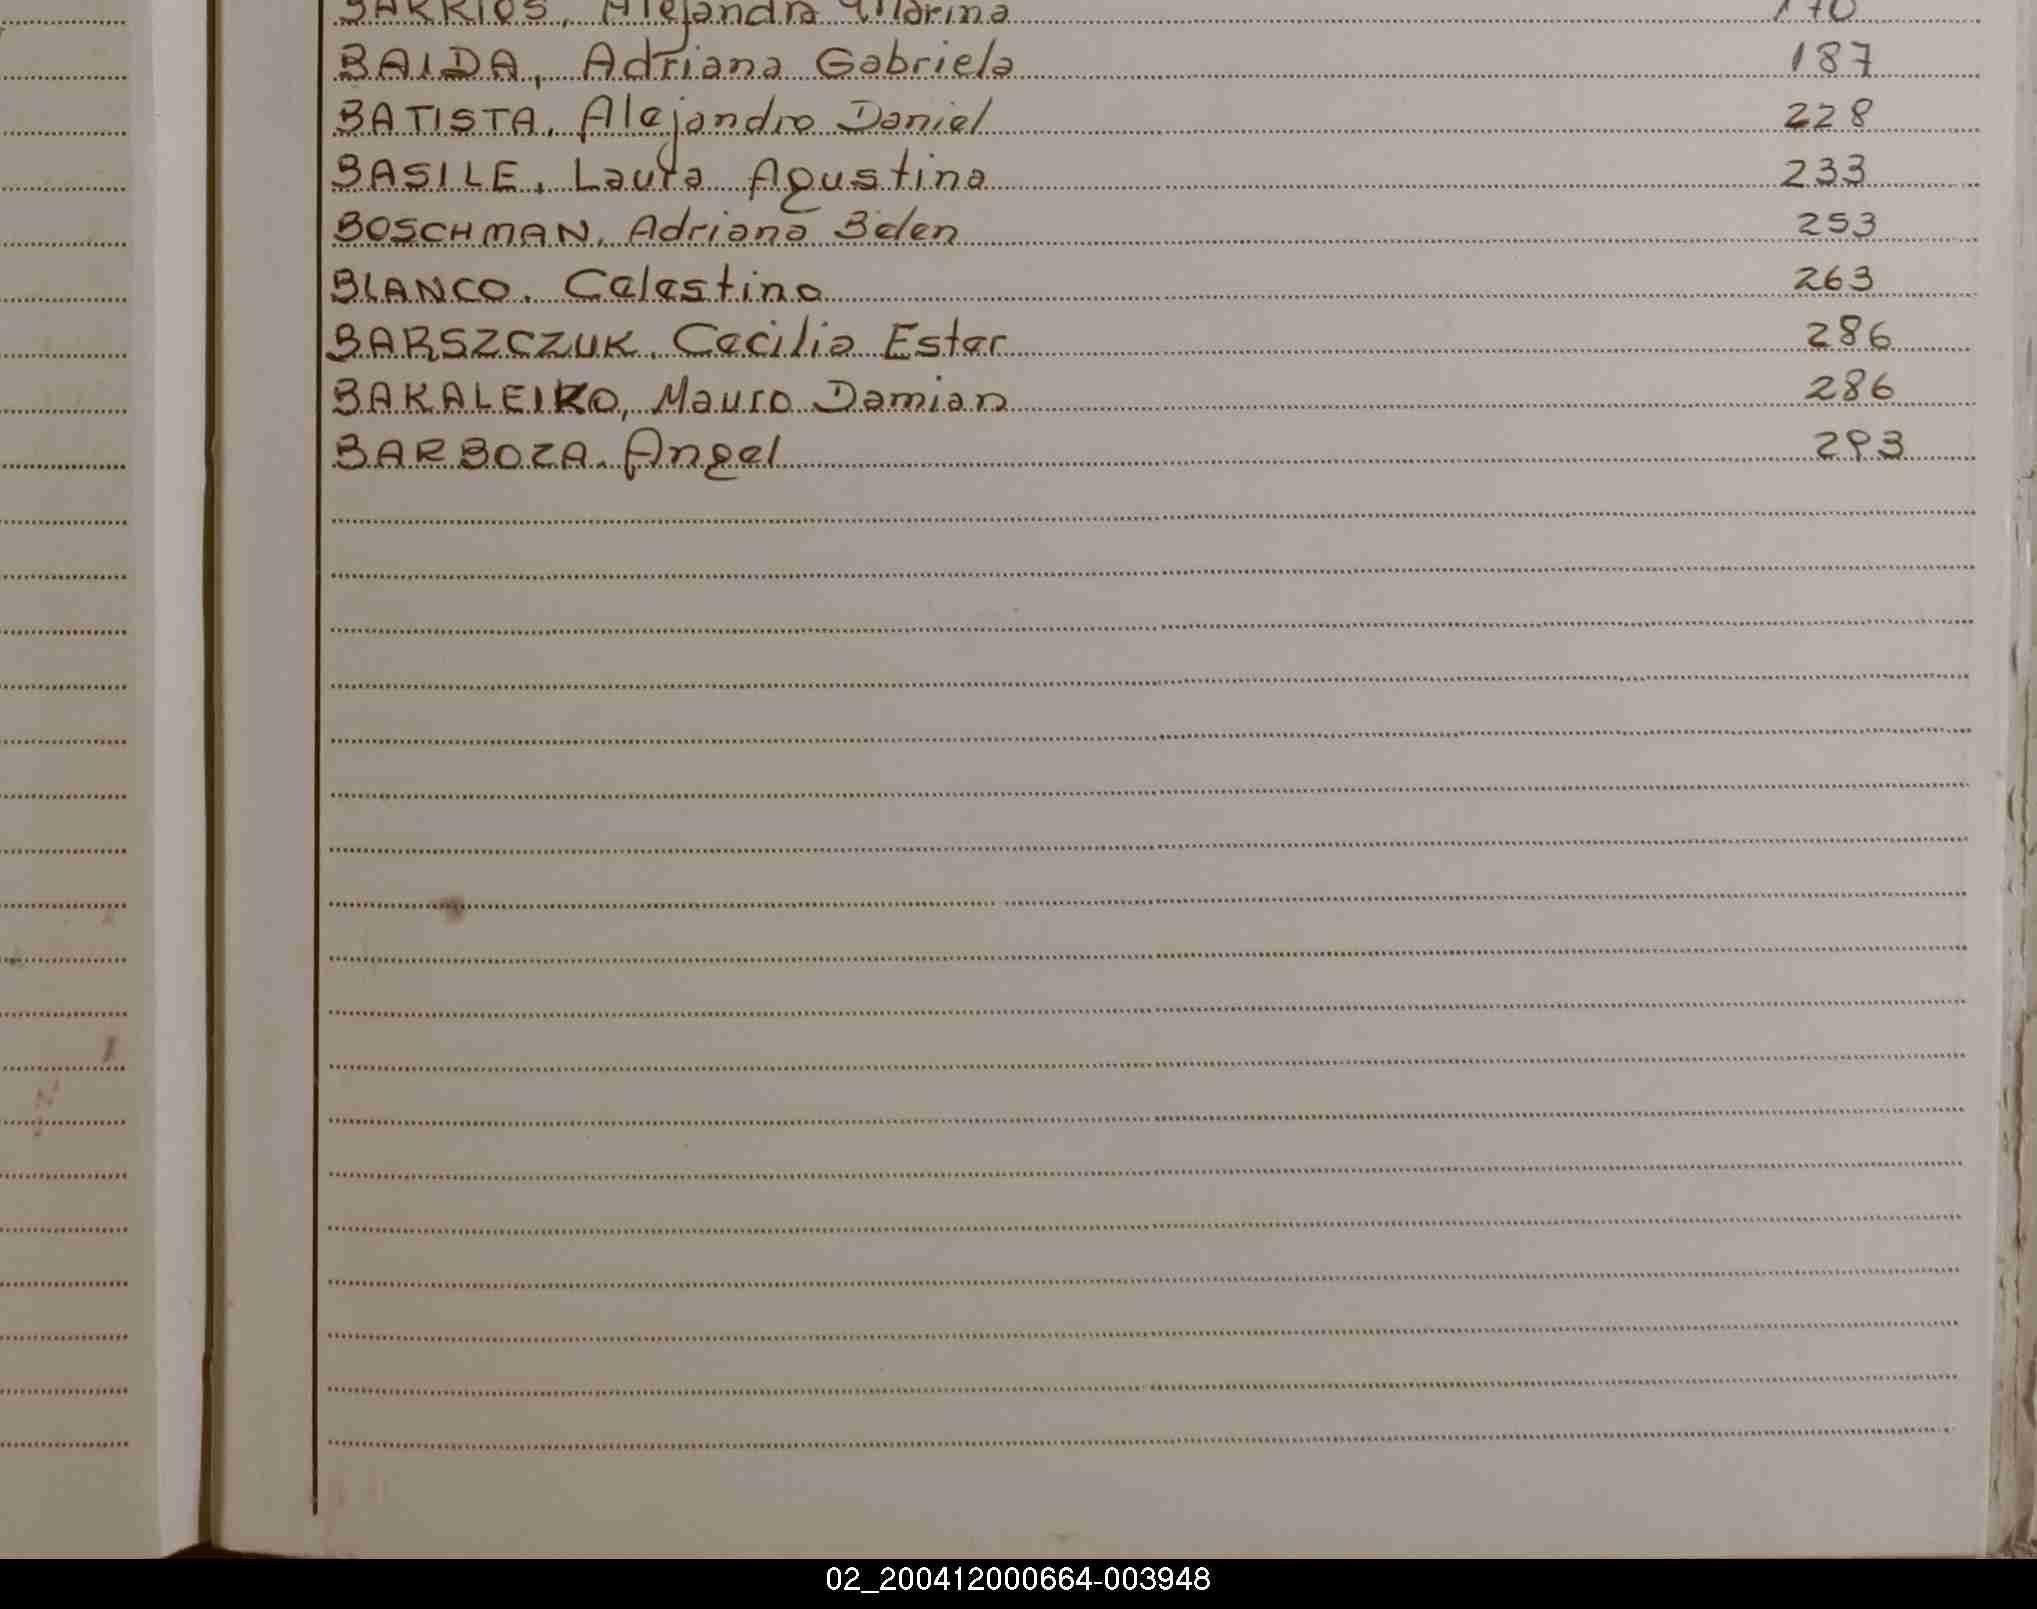 BARRIOS, Alejandra Marina 170
BAIDA, Adriana Gabriela 187
BATISTA, Alejandro Daniel 228
BASILE, Laura Agustina 233
BOSCHMAN, Adriana Belen 253
BLANCO, Celestino 263
BARSZCZUK, Cecilia Ester 286
BAKALEIKO, Mauro Damian 286
BARBOZA, Angel 293
02_200412000664-003948